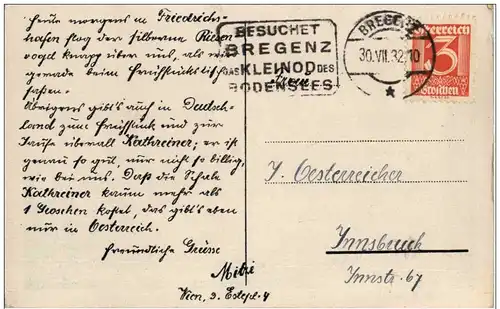 Heute morgens in Friedrichs-
hafen flog der silberne Riesen
vogel knapp über uns, als wir
gerade beim Frühstückstisch
saßen.
Übrigens gibt's auch in Deutsch-
land zum Frühstück und zur
Jause überall Kathreiner; er ist
genau so gut, nur nicht so billig,
wie bei uns. Daß die Schale
Kathreiner kaum mehr als
1 Groschen kostet, das gibt's eben
nur in Oesterreich.
Freundliche Grüsse
Mitzi
Wien, 9. Estepl. 4
BESUCHET
BREGENZ
DAS KLEINOD DES
BODENSEES
BREGENZ
30.VII.32.10
Österreich
13
Groschen
J. Oesterreicher
Innsbruck
Innstr. 67